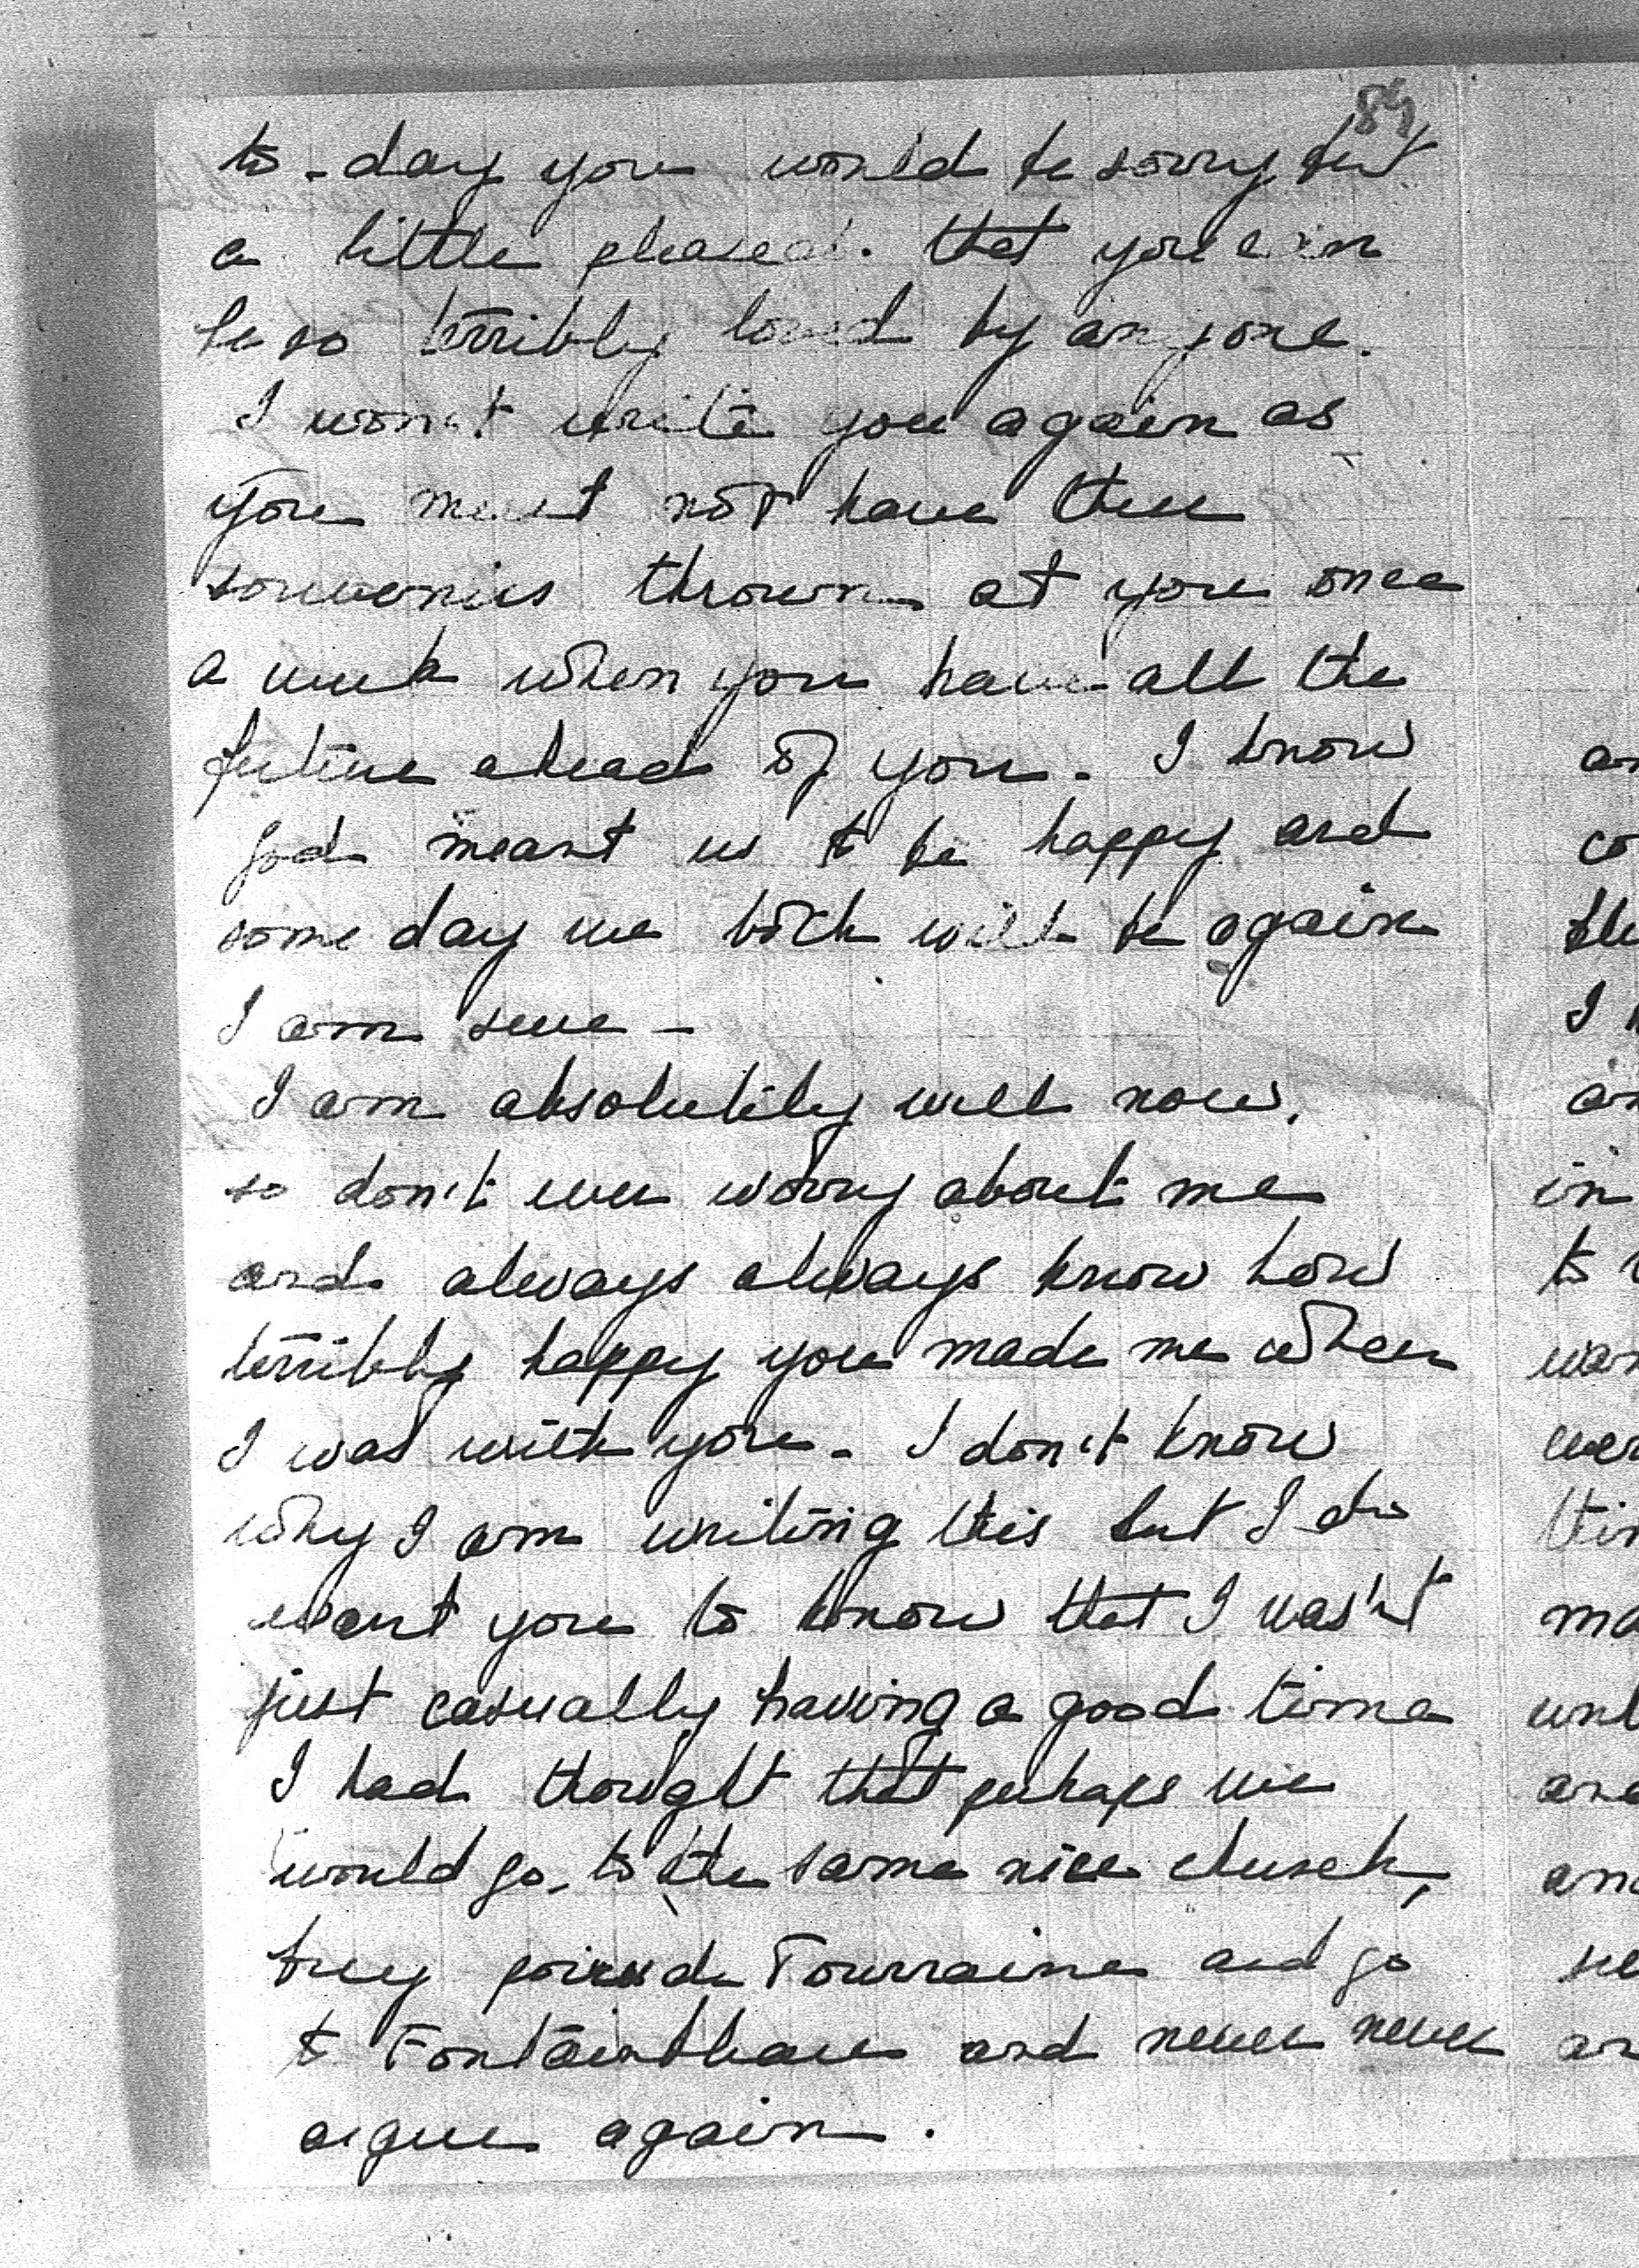 89
to-day you would be sorry but
a little pleased. that you can
be so terribly loved by anyone.
I won't write you again as
you must not have these
souvenirs thrown at you once
a week when you have all the
future ahead of you. I know
god meant us to be happy and
some day we both will be again
I am sure -
I am absolutily well now,
so don't ever worry about me
and always always know how
terribly happy you made me when
I was with you. I don't know
why I am writing this but I do
want you to know that I was'nt
just casually having a good time
I had thought that perhaps we
would go to the same nice church,
buy de Tourraine and go
to and never never
argue again.
an
co
the
I
an
in
to
wan
wer
tin
ma
unt
and
and
se
an